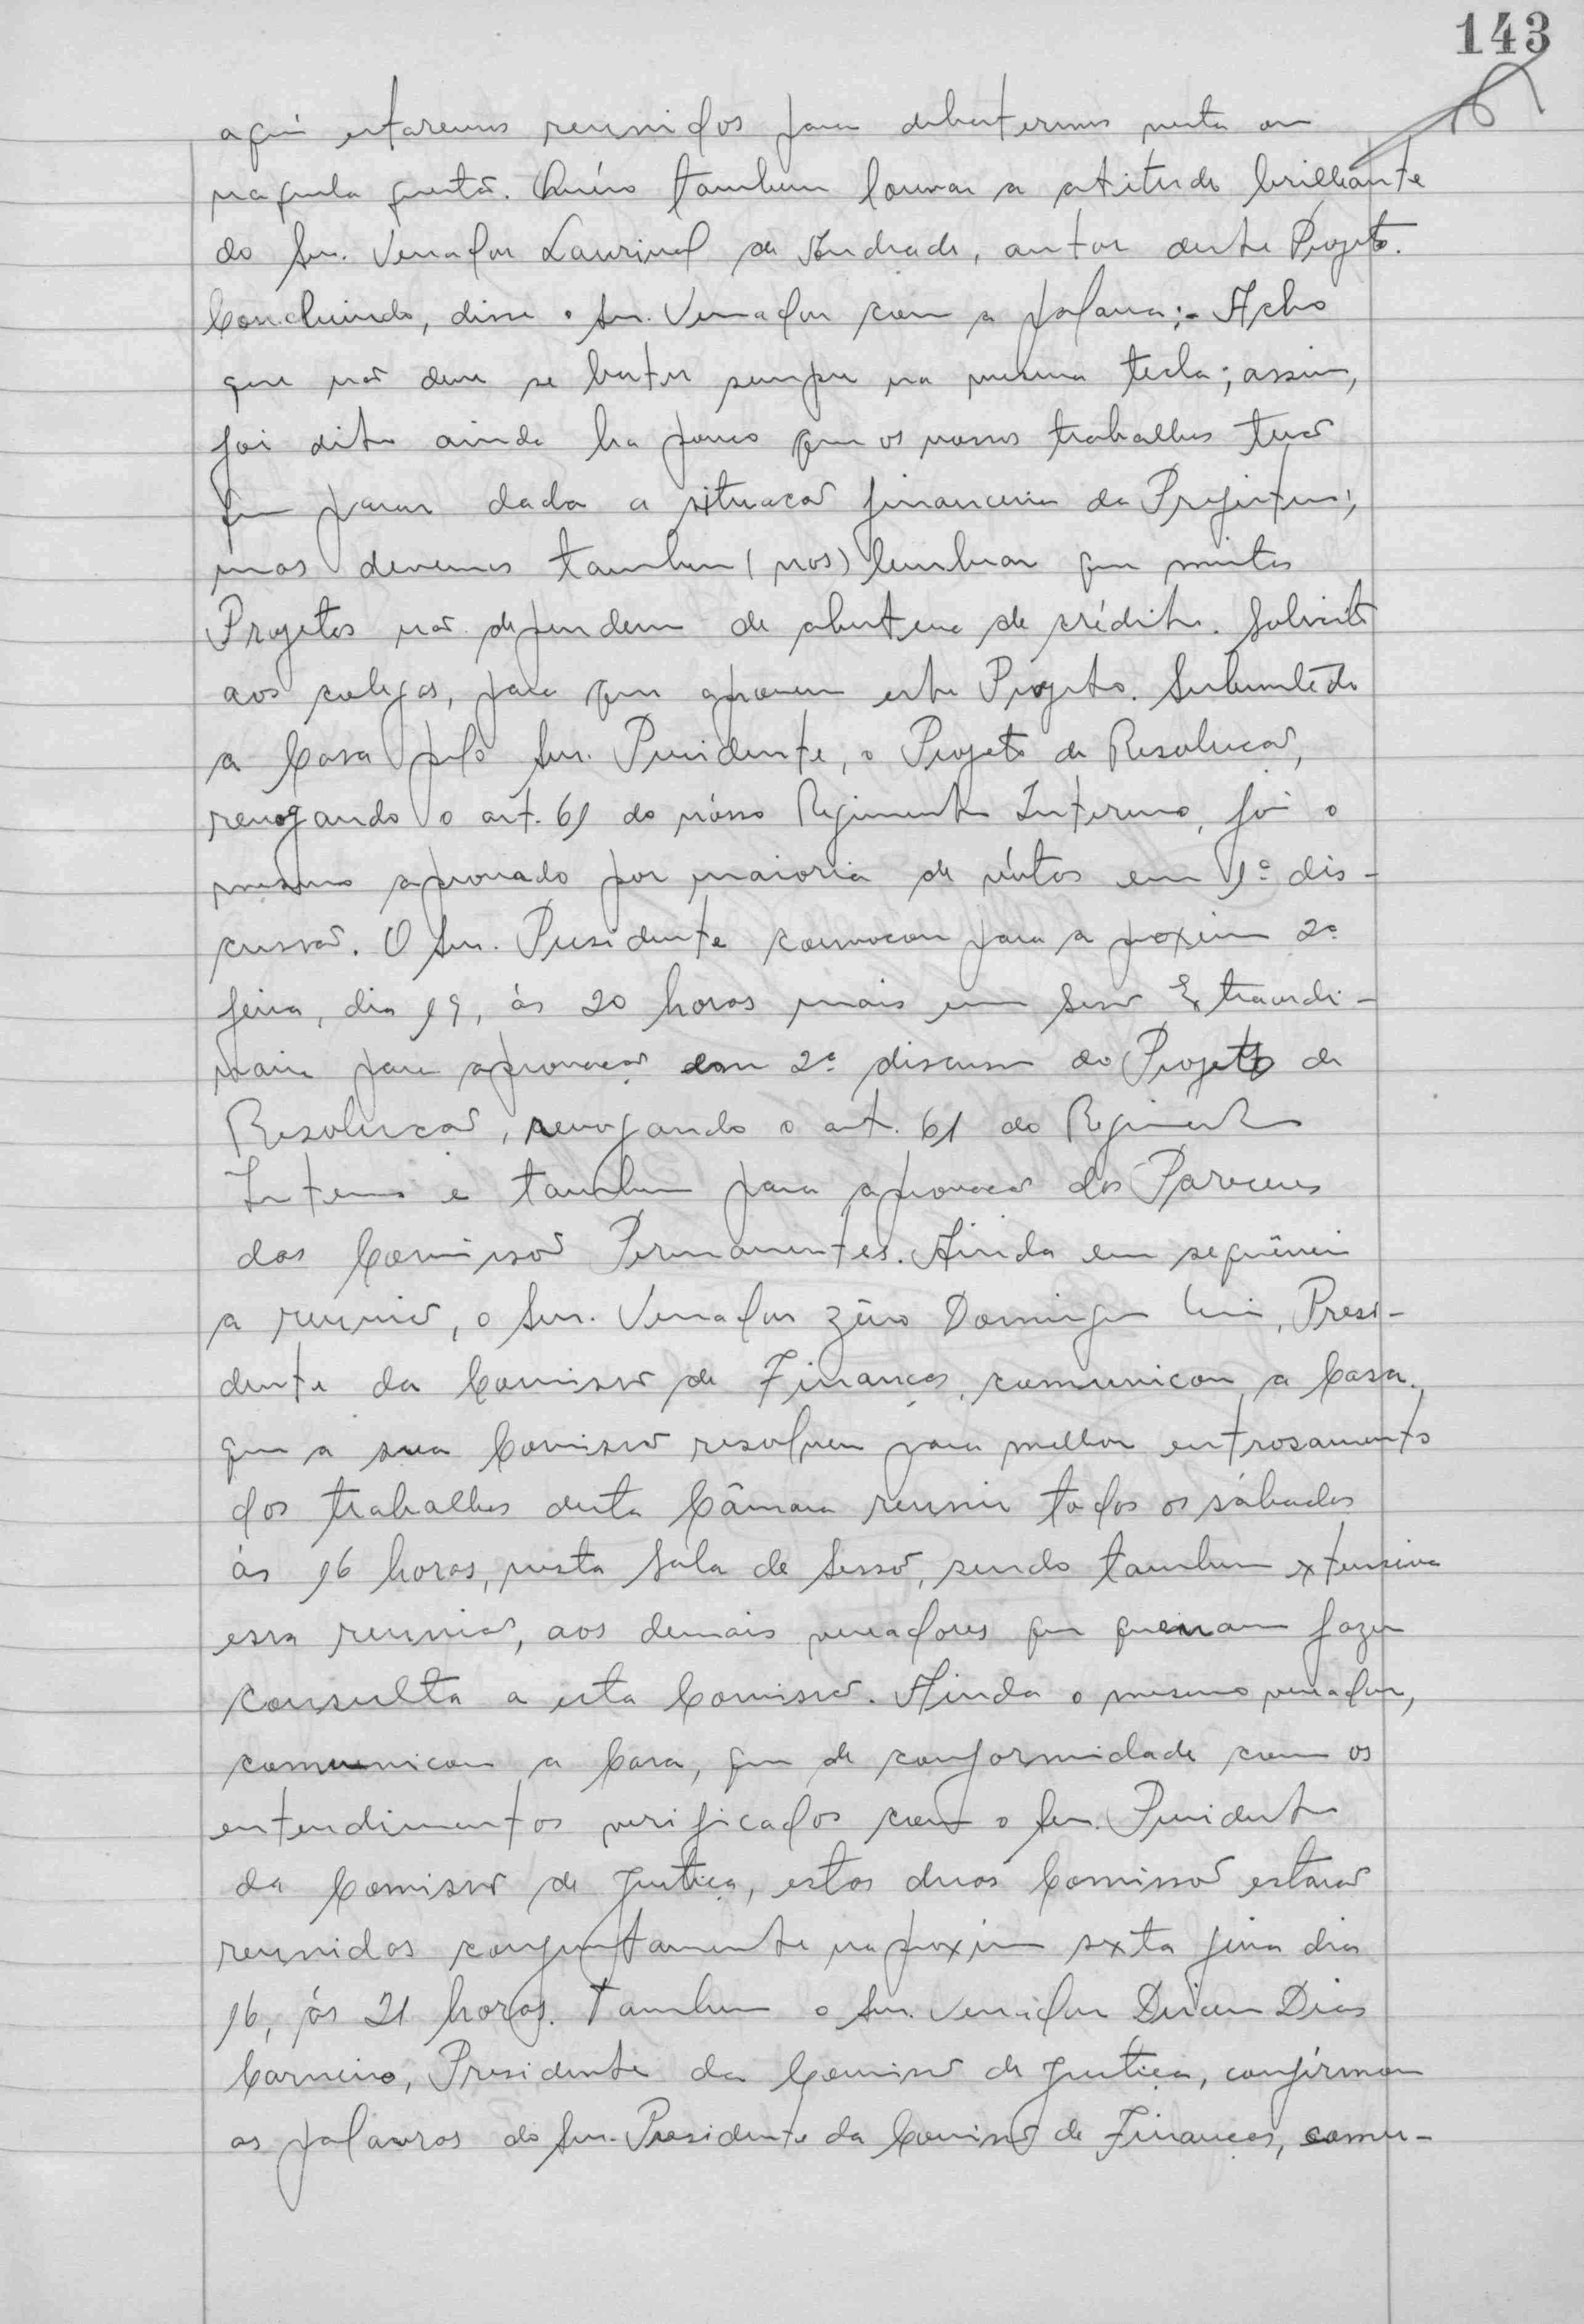 143
aqui estaremos reunidos para debatermos nesta ou
naquela questão. Quéro tambem louvar a atitude brilhante
do Snr. Vereador Laurival de Andrade, autor deste Projeto.
Concluindo, disse o Snr. Vereador com a palavra:- Acho
que não deve se bater sempre na mesma tecla; assim,
foi dito ainda ha pouco que os nossos trabalhos terão
que parar dada a situacão financeira da Prefeitura;
mas devemos tambem (nos) lembrar que muitos
Projetos não dependem de abertura de crédito. Solicito
aos colegas, para que aprovem este Projeto. Submetido
a Casa pelo Snr. Presidente, o Projeto de Resolucão,
revogando o art. 61 do nósso Regimento Interno, foi o
mesmo aprovado por maioria de vótos em 1ª dis-
cussão. O Snr. Presidente convocou para a proxima 2ª
feira, dia 19, ás 20 horas mais uma Sessão Extraordi-
naria para aprovação em 2ª discussão do Projeto de
Resolucão, revogando o art. 61 do Regimento
Interno e tambem para aprovacão dos Pareceres
das Comissões Permanentes. Ainda em sequência
a reunião, o Snr. Vereador Zêno Domingues, Presi-
dente da Comissão de Finanças, comunicou a Casa,
que a sua Comissão resolveu para melhor entrosamento
dos trabalhos desta Câmara reunir todos os sábados
ás 16 horas, nesta Sala de Sessões, sendo tambem extensiva
essa reunião, aos demais vereadores que queiram fazer
consulta a esta Comissão. Ainda o mesmo vereador,
comunicou a Casa, que de conformidade com os
entendimentos verificados com o Snr. Presidente
da Comissão de Justiça, estas duas Comissões estarão
reunidas conjuntamente na proxima sexta feira dia
16, ás 21 horas. Tambem o Snr. Vereador Dirceu Dias
Carneiro, Presidente da Comissão de Justiça, confirmou
as palavras do Snr. Presidente da Comissão de Finanças, comu-